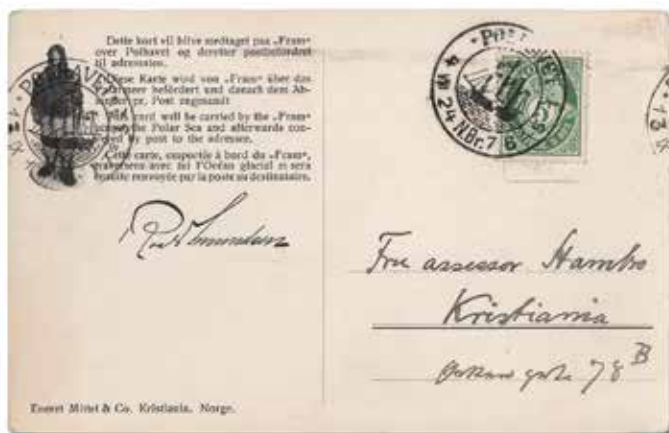 Dette kort vil blive medtaget paa „Fram“
over Polhavet og derefter postbefordret
til adressaten.
Diese Karte wird von „Fram“ über das
befördert und danach dem
pr. Post zugesandt
card will be carried by the „Fram“
the Polar Sea and afterwards
by post to the adressee.
Cette carte, emportée à bord du „Fram“,
avec lui l'Océan glacial et sera
ensuite renvoyée par la poste au destinataire.
POLHAVET
24 NBr. 76
5
Fru assessor Stambo
Kristiania
78 B
Eneret Mittet & Co. Kristiania. Norge.